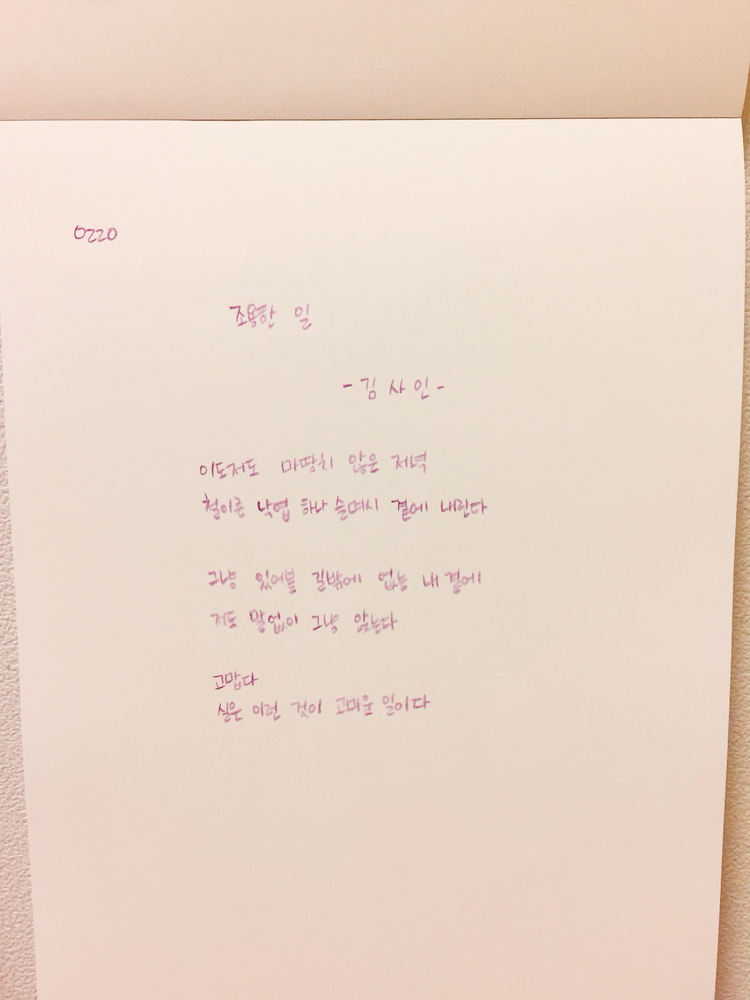 0220
조용한 일
- 김 사 인 -
이도저도 마땅치 않은 저녁
철이른 낙엽 하나 슬며시 곁에 내린다
그냥 있어볼 길밖에 없는 내 곁에
저도 말없이 그냥 앉는다
고맙다
실은 이런 것이 고마운 일이다